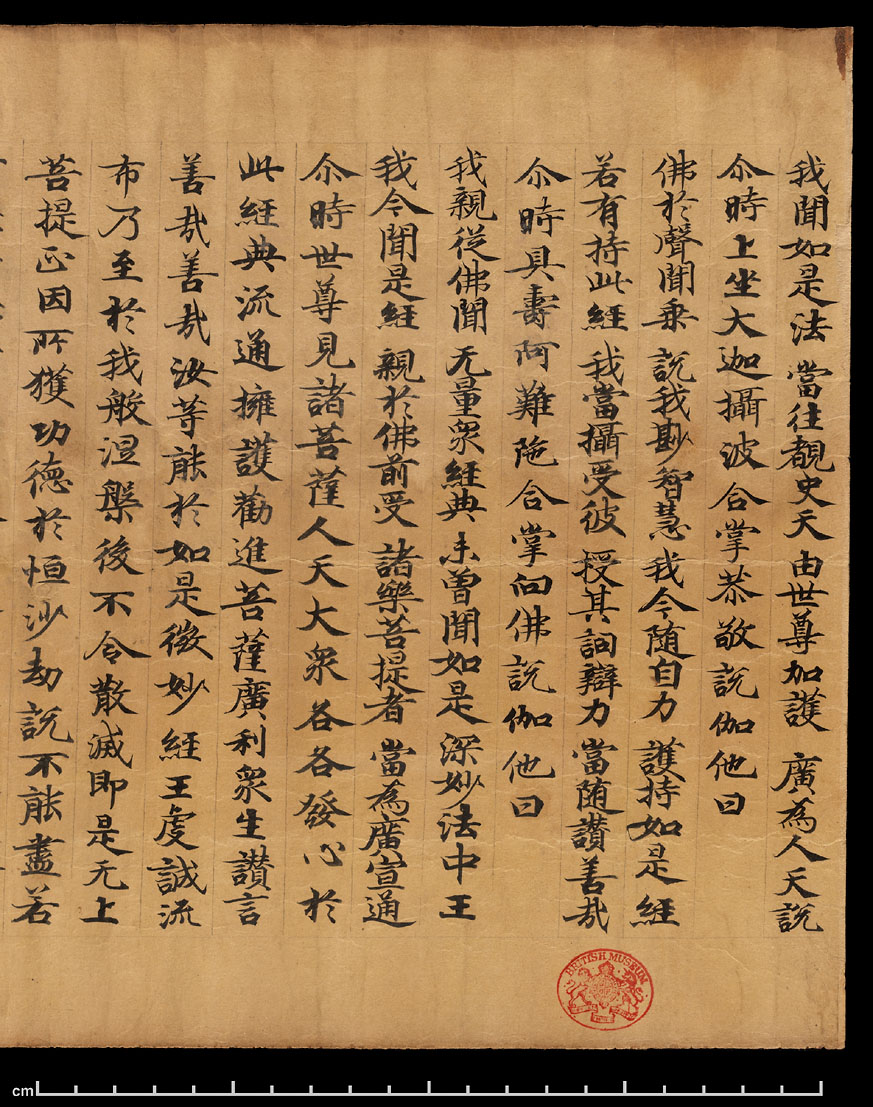 我聞如是法 當往覩史天 由世尊加護 廣為人天說
尒時上坐大迦攝波合掌恭敬說伽他曰
佛於聲聞乘 說我尠智慧 我今随自力 護持如是經
若有持此經 我當攝受彼 授其詞辯力 當随讚善哉
尒時具壽阿難陁合掌向佛說伽他曰
我親從佛聞 无量衆經典 未曾聞如是 深妙法中王
我今聞是經 親於佛前受 諸樂菩提者 當為廣宣通
尒時世尊見諸菩薩人天大衆各各發心於
此經典流通擁護勸進菩薩廣利衆生讚言
善哉善哉汝等能於如是微妙經王虔誠流
布乃至於我般涅槃後不令散滅即是无上
菩提正因所獲功德於恒沙劫說不能盡若
BRITISH MUSEUM
cm